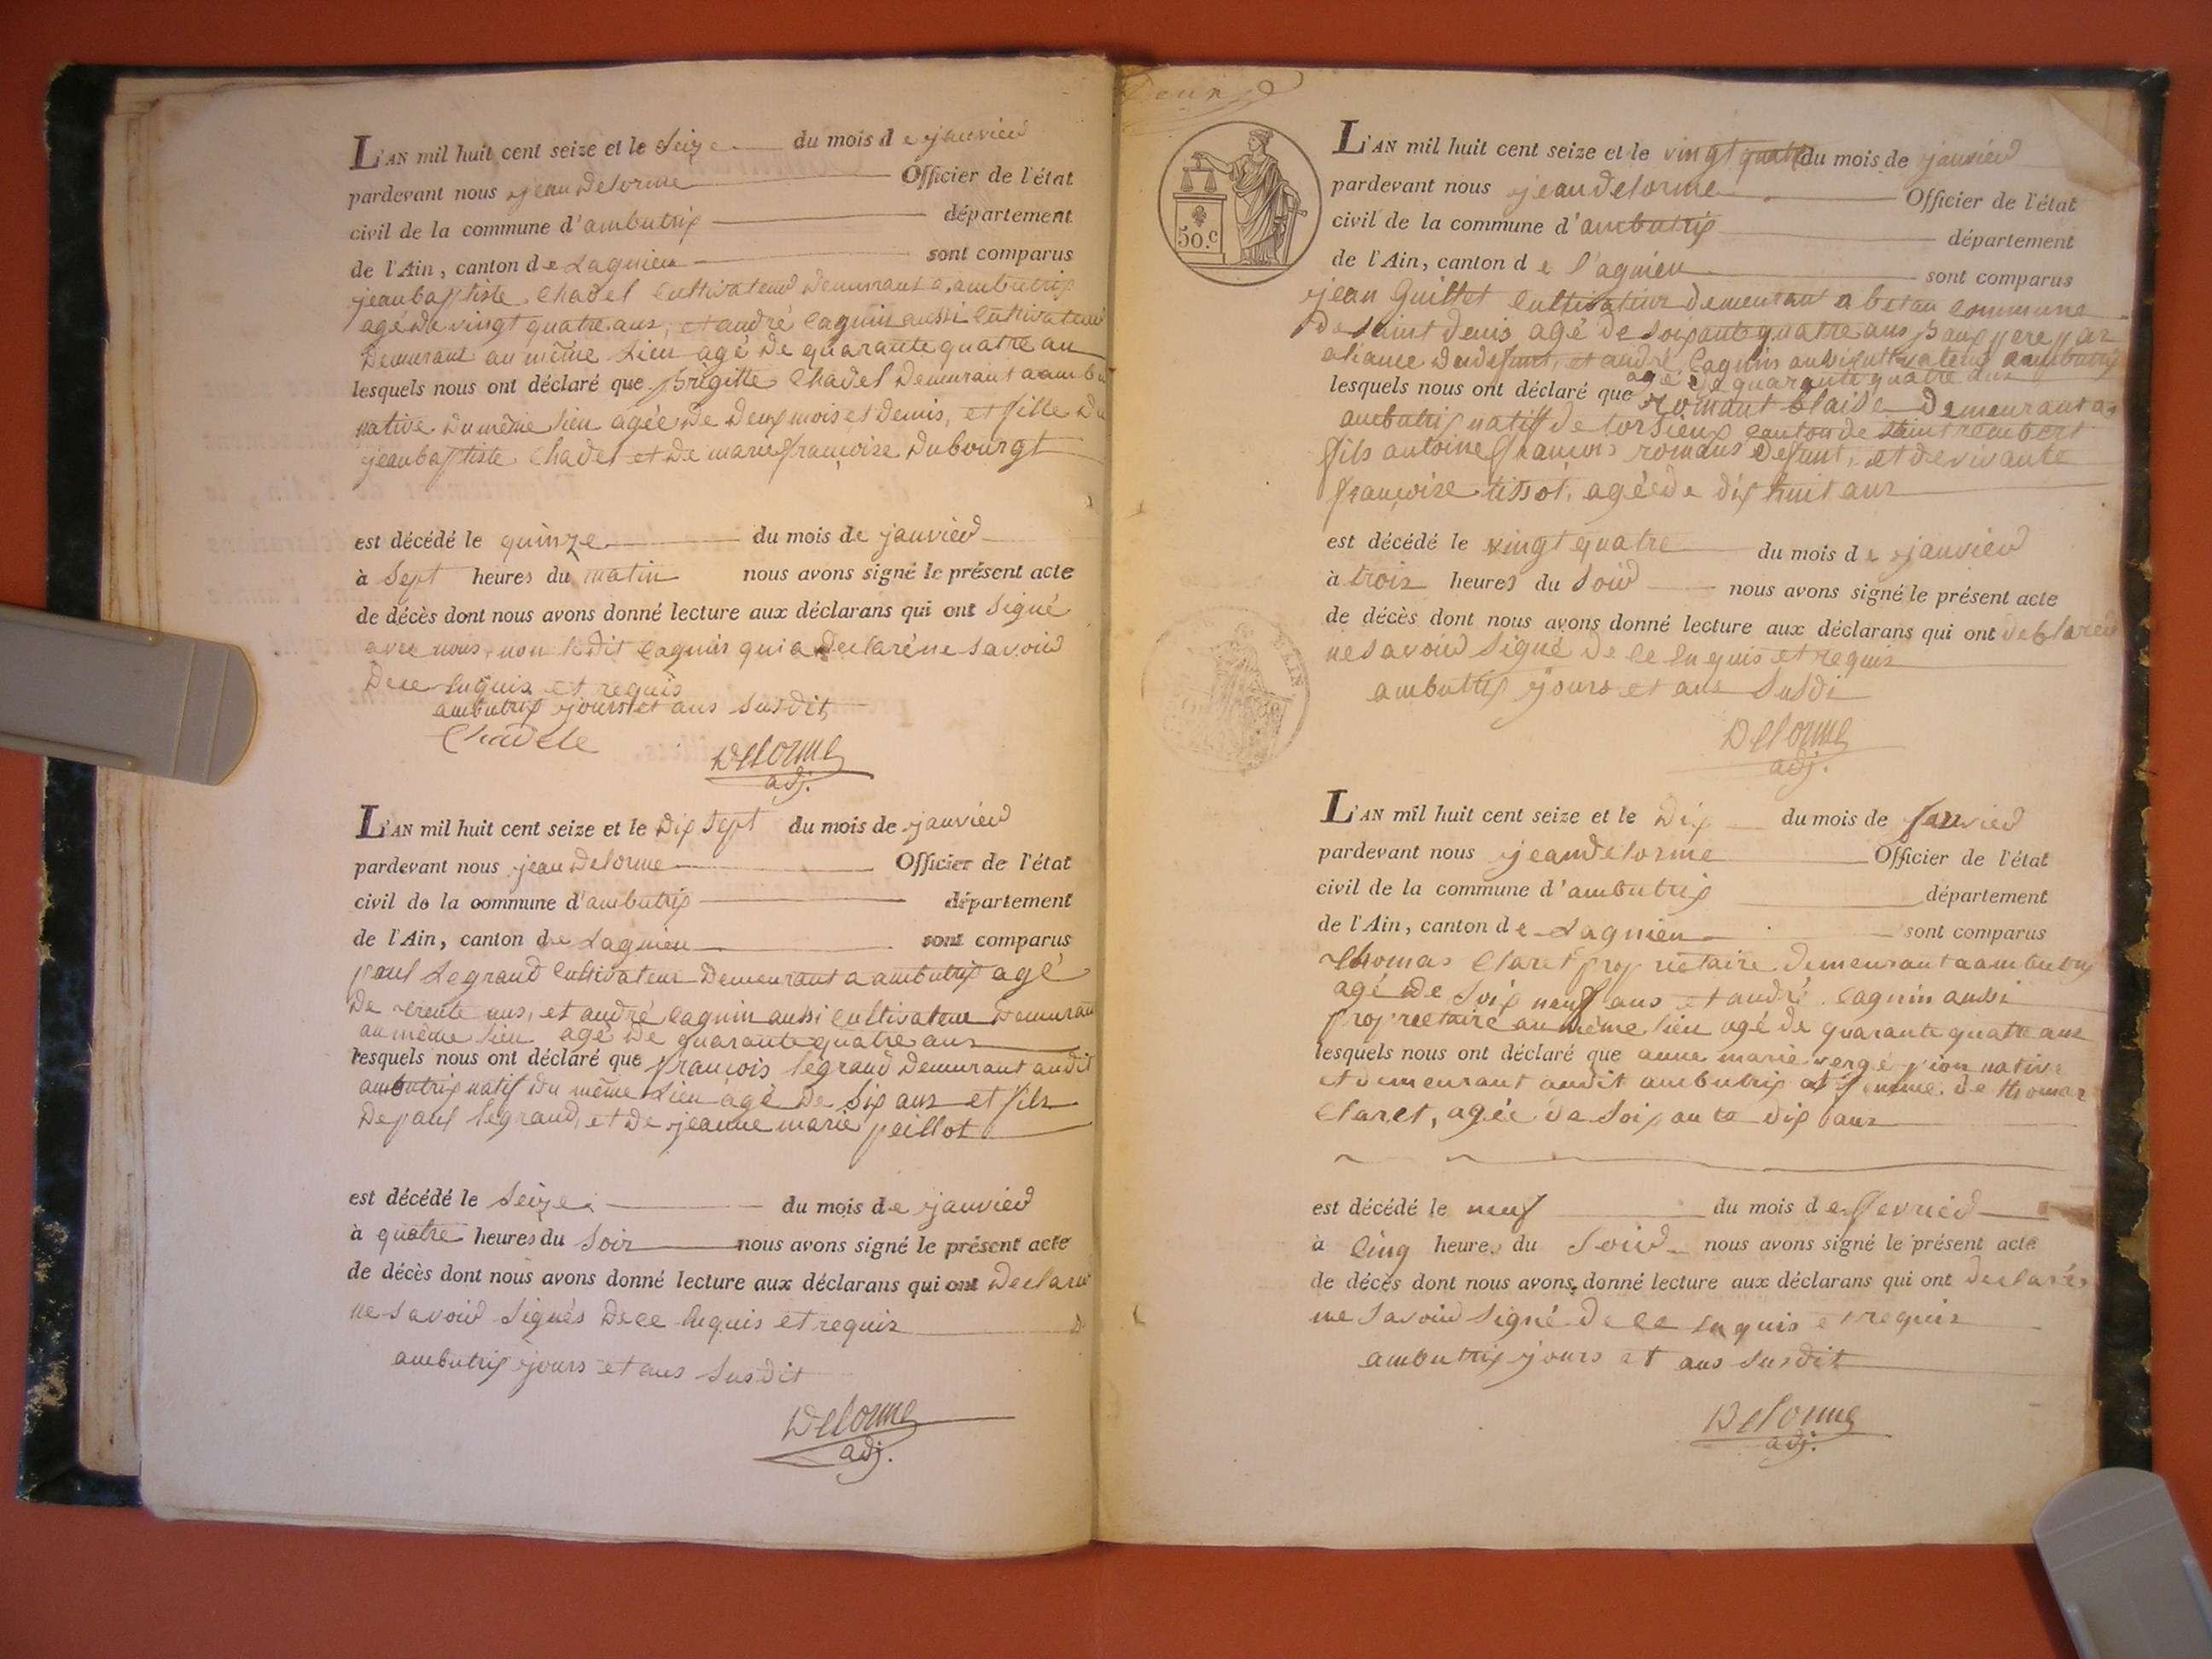 L'AN mil huit cent seize et le Seize du mois de janvier
pardevant nous jean Delorme Officier de l'état
civil de la commune d'ambutrix département
de l'Ain, canton de Lagnieu sont comparus
jean baptiste Chadel Cultivateur Demeurant a ambutrix
agé de vingt quatre ans, et andré Cagnin aussi Cultivateur
Demeurant au même Lieu agé de quarante quatre an
lesquels nous ont déclaré que Brigitte Chadel Demeurant a ambu
native du même lieu agée de Deux mois et Demis, et fille De
jean baptiste Chadel et De marie françoise Dubourgt
est décédé le quinze du mois de janvier
à Sept heures du matin nous avons signé le présent acte
de décès dont nous avons donné lecture aux déclarans qui ont Signé
avec nous, non ledit Cagnin qui a declaré ne savoir
De ce Enquis et requis
ambutrix jours et ans susdit
Chadele
Delorme
adj.
L'AN mil huit cent seize et le Dix Sept du mois de janvier
pardevant nous jean Delorme Officier de l'état
civil de la commune d'ambutrix département
de l'Ain, canton de Lagnieu sont comparus
paul Legrand Cultivateur Demeurant a ambutrix agé
De trente ans, et andré Cagnin aussi Cultivateur Demeurant
au même Lieu agé De quarante quatre ans
lesquels nous ont déclaré que françois legrand Demeurant audit
ambutrix natif du même Lieu agé De Six ans et fils
De paul legrand, et De jeanne marie peillot
est décédé le Seize du mois de janvier
à quatre heures du Soir nous avons signé le présent acte
de décès dont nous avons donné lecture aux déclarans qui ont Declaré
ne savoir Signés De ce Enquis et requis
ambutrix jours et ans Susdit
Delorme
adj.
50.c
L'AN mil huit cent seize et le vingt quatre du mois de janvier
pardevant nous jean Delorme Officier de l'état
civil de la commune d'ambutrix département
de l'Ain, canton de l'agnieu sont comparus
jean Guillet Cultivateur demeurant a Commune
de Saint Denis agé de Soixante quatre ans Baux pere par
aliance Du defunt, et andré Cagnin aussi Cultivateur a ambutrix
agé de quarante quatre ans
lesquels nous ont déclaré que romant Blaise Demeurant a
ambutrix natif de torsieux Canton de Saint rembert
fils antoine françois romans Defunt, et de vivante
françoise tissot, agée de dix huit ans
est décédé le vingt quatre du mois de janvier
à trois heures du Soir nous avons signé le présent acte
de décès dont nous avons donné lecture aux déclarans qui ont declarer
ne savoir Signé De ce Enquis et requis
ambutrix jours et ans Susdi
Delorme
adj.
L'AN mil huit cent seize et le Dix du mois de
pardevant nous jean delorme Officier de l'état
civil de la commune d'ambutrix département
de l'Ain, canton de Lagnieu sont comparus
thomas Claret proprietaire demeurant a ambutrix
agé de Soix neuf ans et andré Cagnin aussi
proprietaire au même lieu agé de quarante quatre ans
lesquels nous ont déclaré que anne marie vergé pion native
et demeurant audit ambutrix femme de thomas
Claret, agée de Soixante dix ans
est décédé le neuf du mois de fevrier
à Cinq heures du Soir nous avons signé le présent acte
de décès dont nous avons donné lecture aux déclarans qui ont declarés
ne savoir Signé De ce Enquis et requis
ambutrix jours et ans susdit
Delorme
adj.